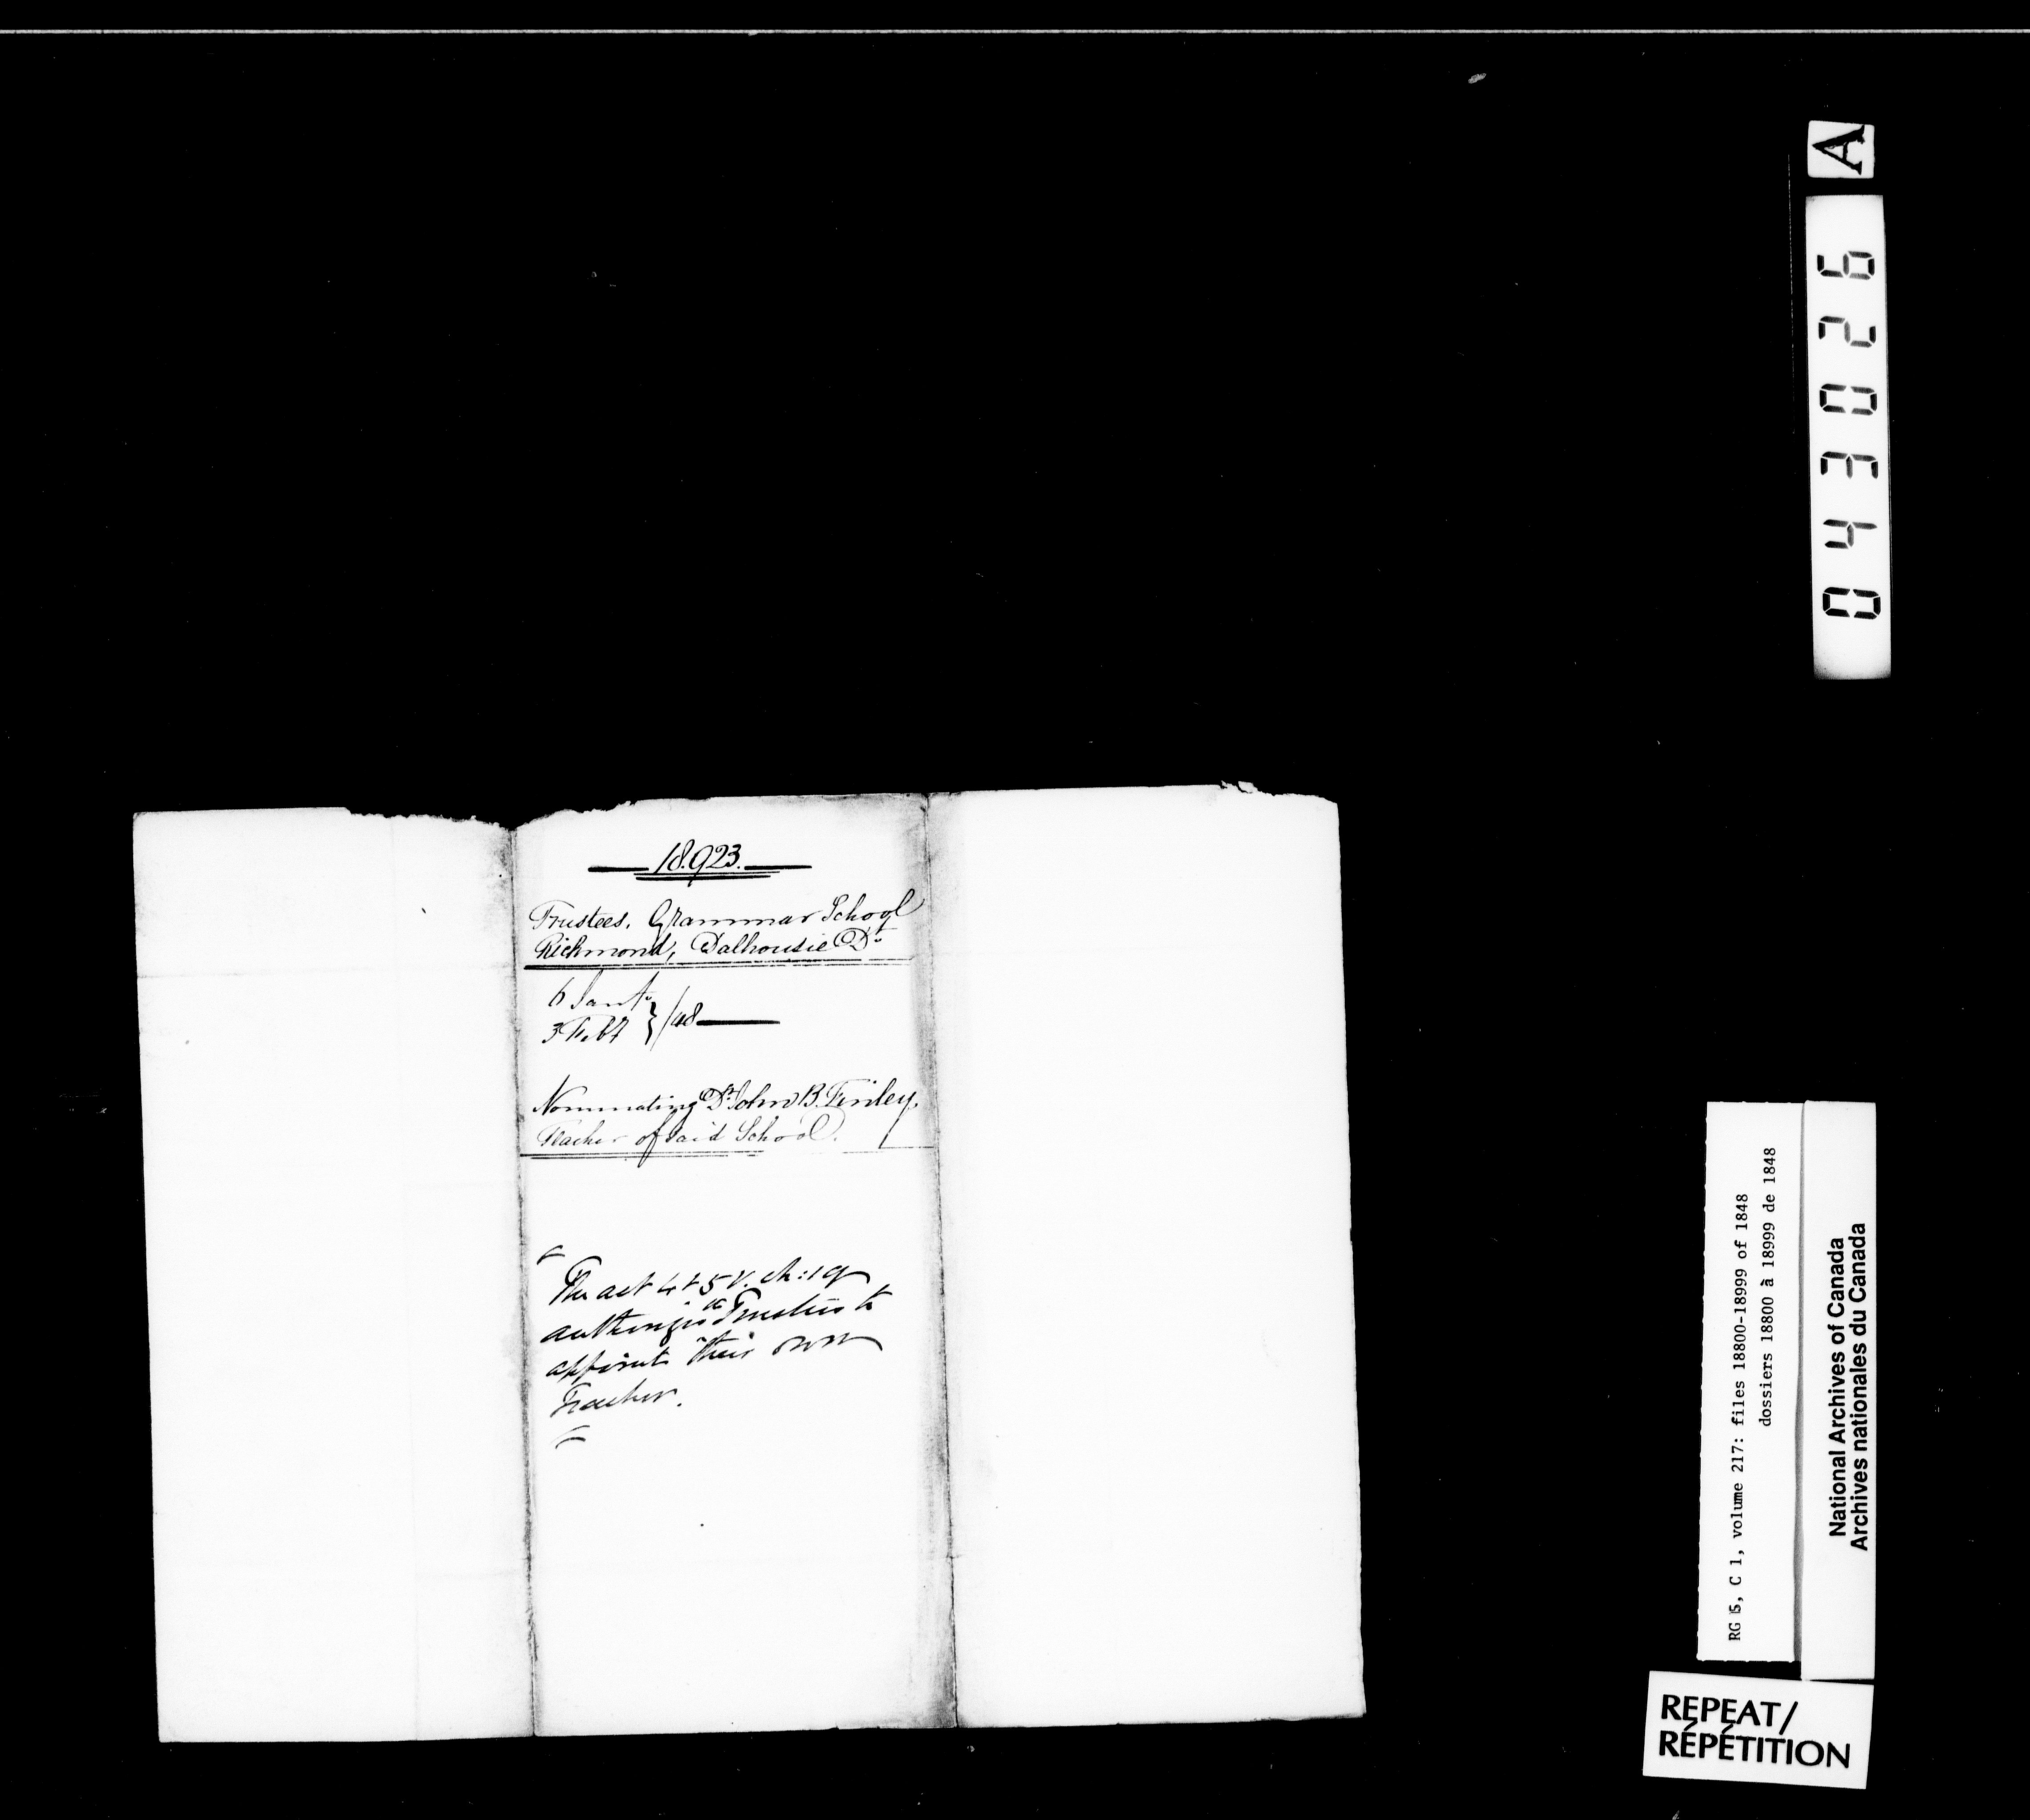 18.923.
Trustees, Grammar School
Richmond, Dalhousie Dt.
6 Jany
3 Feby } /48
Nominating Dr. John B. Finley,
Teacher of said School.
The act 4 & 5 V. ch: 19
authorizes the Trustees to
appoint their own
Teacher.
A
043026
RG 5, C 1, volume 217: files 18800-18999 of 1848
dossiers 18800 à 18999 de 1848
National Archives of Canada
Archives nationales du Canada
REPEAT/
RÉPÉTITION